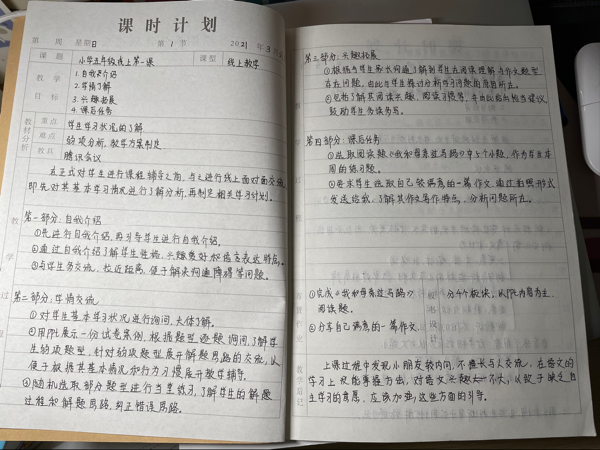 课时计划
第 周 星期日 第 1 节 2021 年 3月
课题 小学五年级线上第一课 课型 线上教学
教学目标
1. 自我介绍
2. 学情了解
3. 兴趣拓展
4. 课后任务
教材分析
重点 学生学习状况的了解
难点 错误分析，教学方案制定
教具 腾讯会议
在正式对学生进行课程辅导之前，与之进行线上面对面交流，
即先对其基本学习情况进行了解分析，再制定相关学习计划。
教学过程
第一部分：自我介绍
①先进行自我介绍，再引导学生进行自我介绍。
②通过自我介绍了解学生性格、兴趣爱好和语言表达特点。
③与学生多交流，拉近距离，便于解决沟通障碍等问题。
第二部分：学情交流
①对学生基本学习状况进行询问，大体了解。
②用PPT展示一份试卷案例，根据题型逐题询问，了解学
生的错题型，针对错误题型展开解题思路的交流，以
便于根据其基本情况和行为习惯展开教学辅导。
③随机选取部分题型进行当堂练习，了解学生的解题
过程和解题思路，纠正错误思路。
第三部分：兴趣拓展
①根据与学生家长沟通了解到学生在阅读理解与作文题型
存在问题，由此与学生探讨分析学习问题的原因所在。
②包括了解其阅读兴趣，阅读习惯等，并由此给出恰当建议，
鼓励学生多读多写。
第四部分：课后任务
①选取阅读题《我和母亲过马路》中5个小题，作为学生本
周的练习题。
②要求学生选取自己较满意的一篇作文，通过拍照形式
发送给我，了解其作文写作特点，分析问题所在。
布置作业
①完成《我和母亲过马路》
阅读题。
②分享自己满意的一篇作文。
板书设计
分4个板块，以PPT内容为主。
教学后记
上课过程中发现小朋友较内向，不擅长与人交流，在语文的
学习上没能掌握方法，对语文兴趣不大，以致于缺乏自
主学习的意愿，应该加强这些方面的引导。